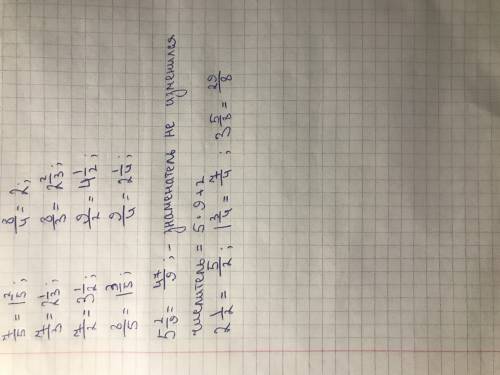 7/5 = 1 2/5; 8/4 = 2;
7/3 = 2 1/3; 8/3 = 2 2/3;
7/2 = 3 1/2; 9/2 = 4 1/2;
8/5 = 1 3/5; 9/4 = 2 1/4;
5 2/9 = 47/9; - знаменатель не изменился
числитель = 5·9+2
2 1/2 = 5/2; 1 3/4 = 7/4; 3 5/8 = 29/8